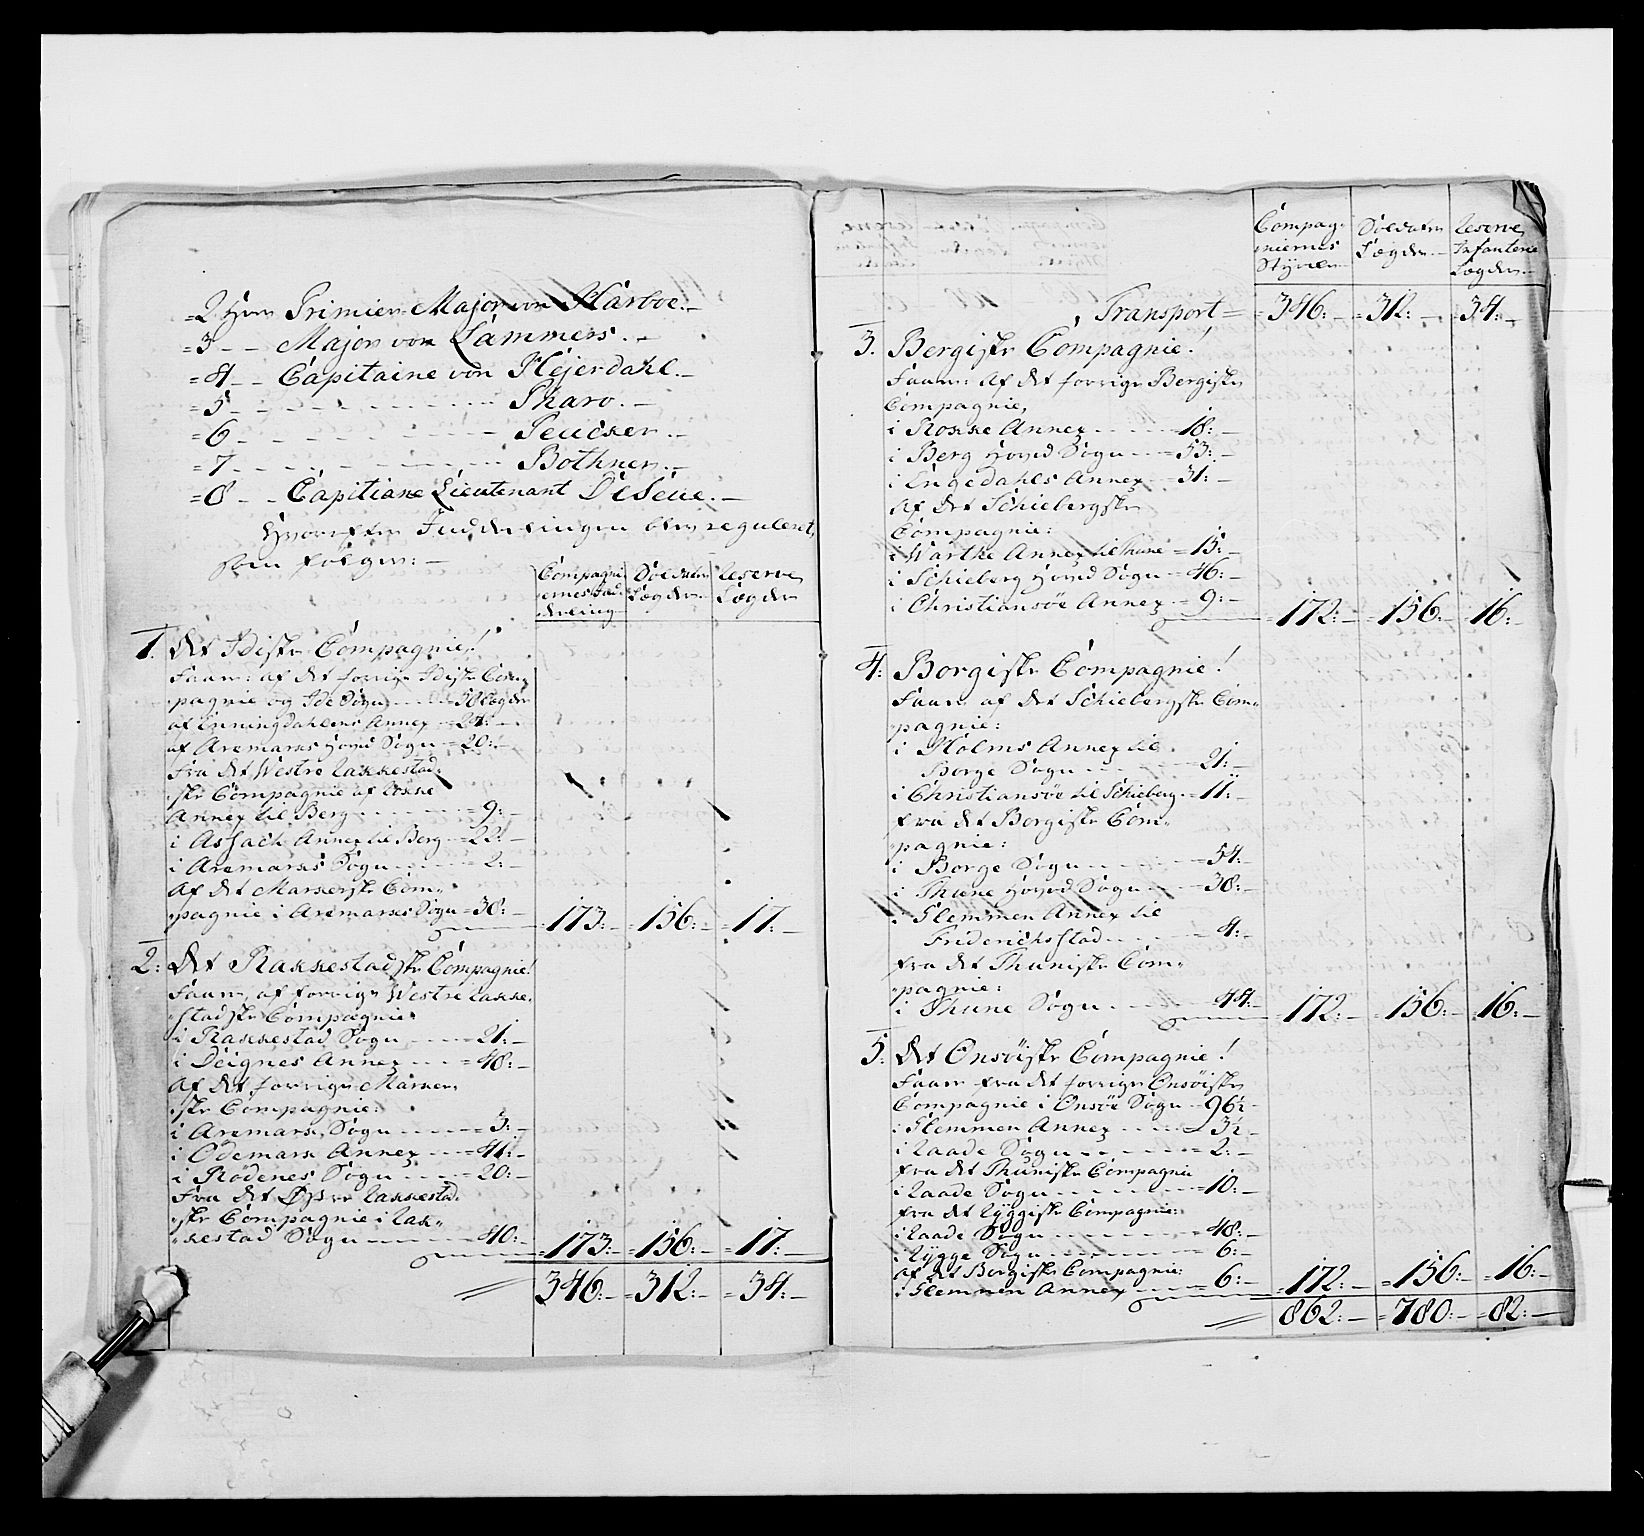 =2 Herr Primier-Major von Harboe.-
=3 - - Major von Lammers. -
=4 - - Capitaine von Hejerdahl. -
=5 - - - - - - Tharo. -
=6 - - - - - - Peucker. -
=7 - - - - - - Bothner. -
=8 - - Capitiane Lieutenant DeSeue. -
Hvorefter Inddeelingen blev reguleret,
som følger: -
Compagni- Soldater Reserve
ernes Ind- Lægder. Lægder
deeling
1. Det Idiske Compagnie!
Faaer: af det forrige Idiske Com-
pagnie og Ide Sogn - - 58 Lægder
af Enningdahlens Annex - 24: -
af Aremarks Hoved Sogn = 20: -
Fra det Westre Rakkestad-
ske Compagnie af Rokke
Annex til Berg - - - - 9: -
i Assach Annex til Berg - 22: -
i Aremarks Sogn - - - - 2: -
Af det Markerske Com-
pagnie i Aremarks Sogn = 38: - =173: - =156: - =17: -
2: Det Rakkestadske Compagnie!
Faaer, af forrige Westre Rakke-
stadske Compagnie
i Rakkestad Sogn - - - 21: -
i Deignes Annex - - - = 48: -
Af det forrige Marker-
ske Compagnie:
i Aremark Sogn - - - = 3: -
i Ødemark Annex - - = 41: -
i Rødenes Sogn - - - = 20: -
Fra det Øvre Rakkestad-
ske Compagnie i Rak-
kestad Sogn - - - - = 40: - =173: - =156: - =17: -
346: - =312: - =34: -
Compag- Soldater Reserve
niernes Lægder. Infanterie
Styrke Lægder
Transport = =346: - =312: - =34: -
3. Bergiske Compagnie!
Faaer: Af det forrige Bergiske
Compagnie,
i Rokke Annex - - - - 18: -
i Berg Hoved Sogn - - = 53: -
i Ingedahls Annex - - 31: -
Af det Schiebergske
Compagnie:
i Warthe Annex til Thune = 15: -
i Schieberg Hoved Sogn = 46: -
i Christiansøe Annex - 9: - =172: - =156: - 16: -
4: Borgiske Compagnie!
Faaer af det Schiebergske Com-
pagnie:
i Holms Annex til
Borge Sogn - - - - 21: -
i Christiansøe til Schieberg. = 11: -
fra det Borgiske Com-
pagnie:
i Borge Sogn - - - - = 54: -
i Thune Hoved Sogn - - 38: -
i Glemmen Annex til
Friderichsstad - - - - = 4: -
fra det Thuniske Com-
pagnie:
i Thune Sogn - - - - 44: - =172: - =156: - =16: -
5. Det Onsøiske Compagnie!
Faaer fra det forrige Onsøiske
Compagnie i Onsøe Sogn - 96½ -
i Glemmen Annex - - - 3½ -
i Raade Sogn - - - - = 2: -
fra det Thuniske Compagnie
i Raade Sogn - - - - = 10: -
fra det Ryggiske Compagnie:
i Raade Sogn - - - - = 48: -
i Rygge Sogn - - - - = 6: -
af det Borgiske Compagnie:
i Glemmen Annex - - - = 6: - =172: - =156: - =16: -
862: - =780: - =82: -